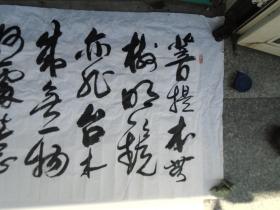 菩提本无
树明镜
亦非台本
来无一物
何处惹